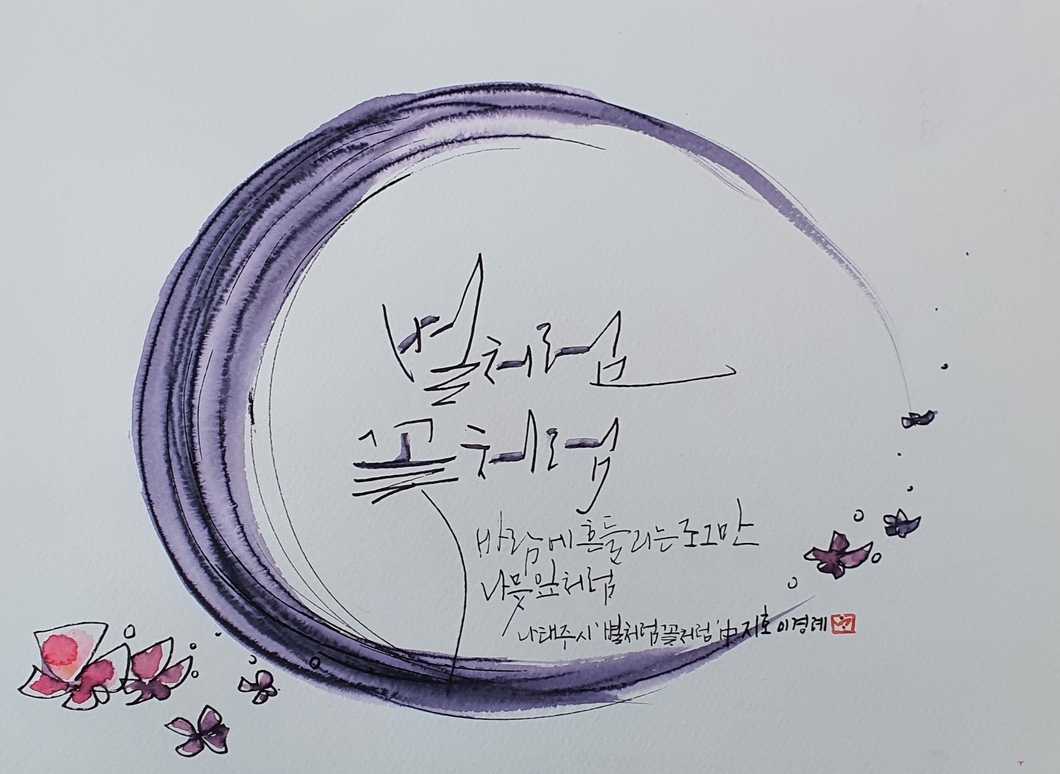 별처럼
꽃처럼
바람에 흔들리는 조그만
나뭇잎처럼
나태주 시 '별처럼 꽃처럼' 中 지호 이경례